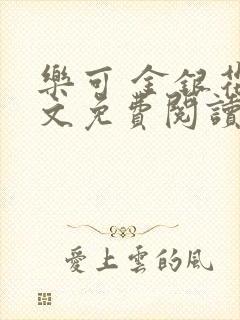 樂可 金銀花
文免費閱讀
愛上雲的風